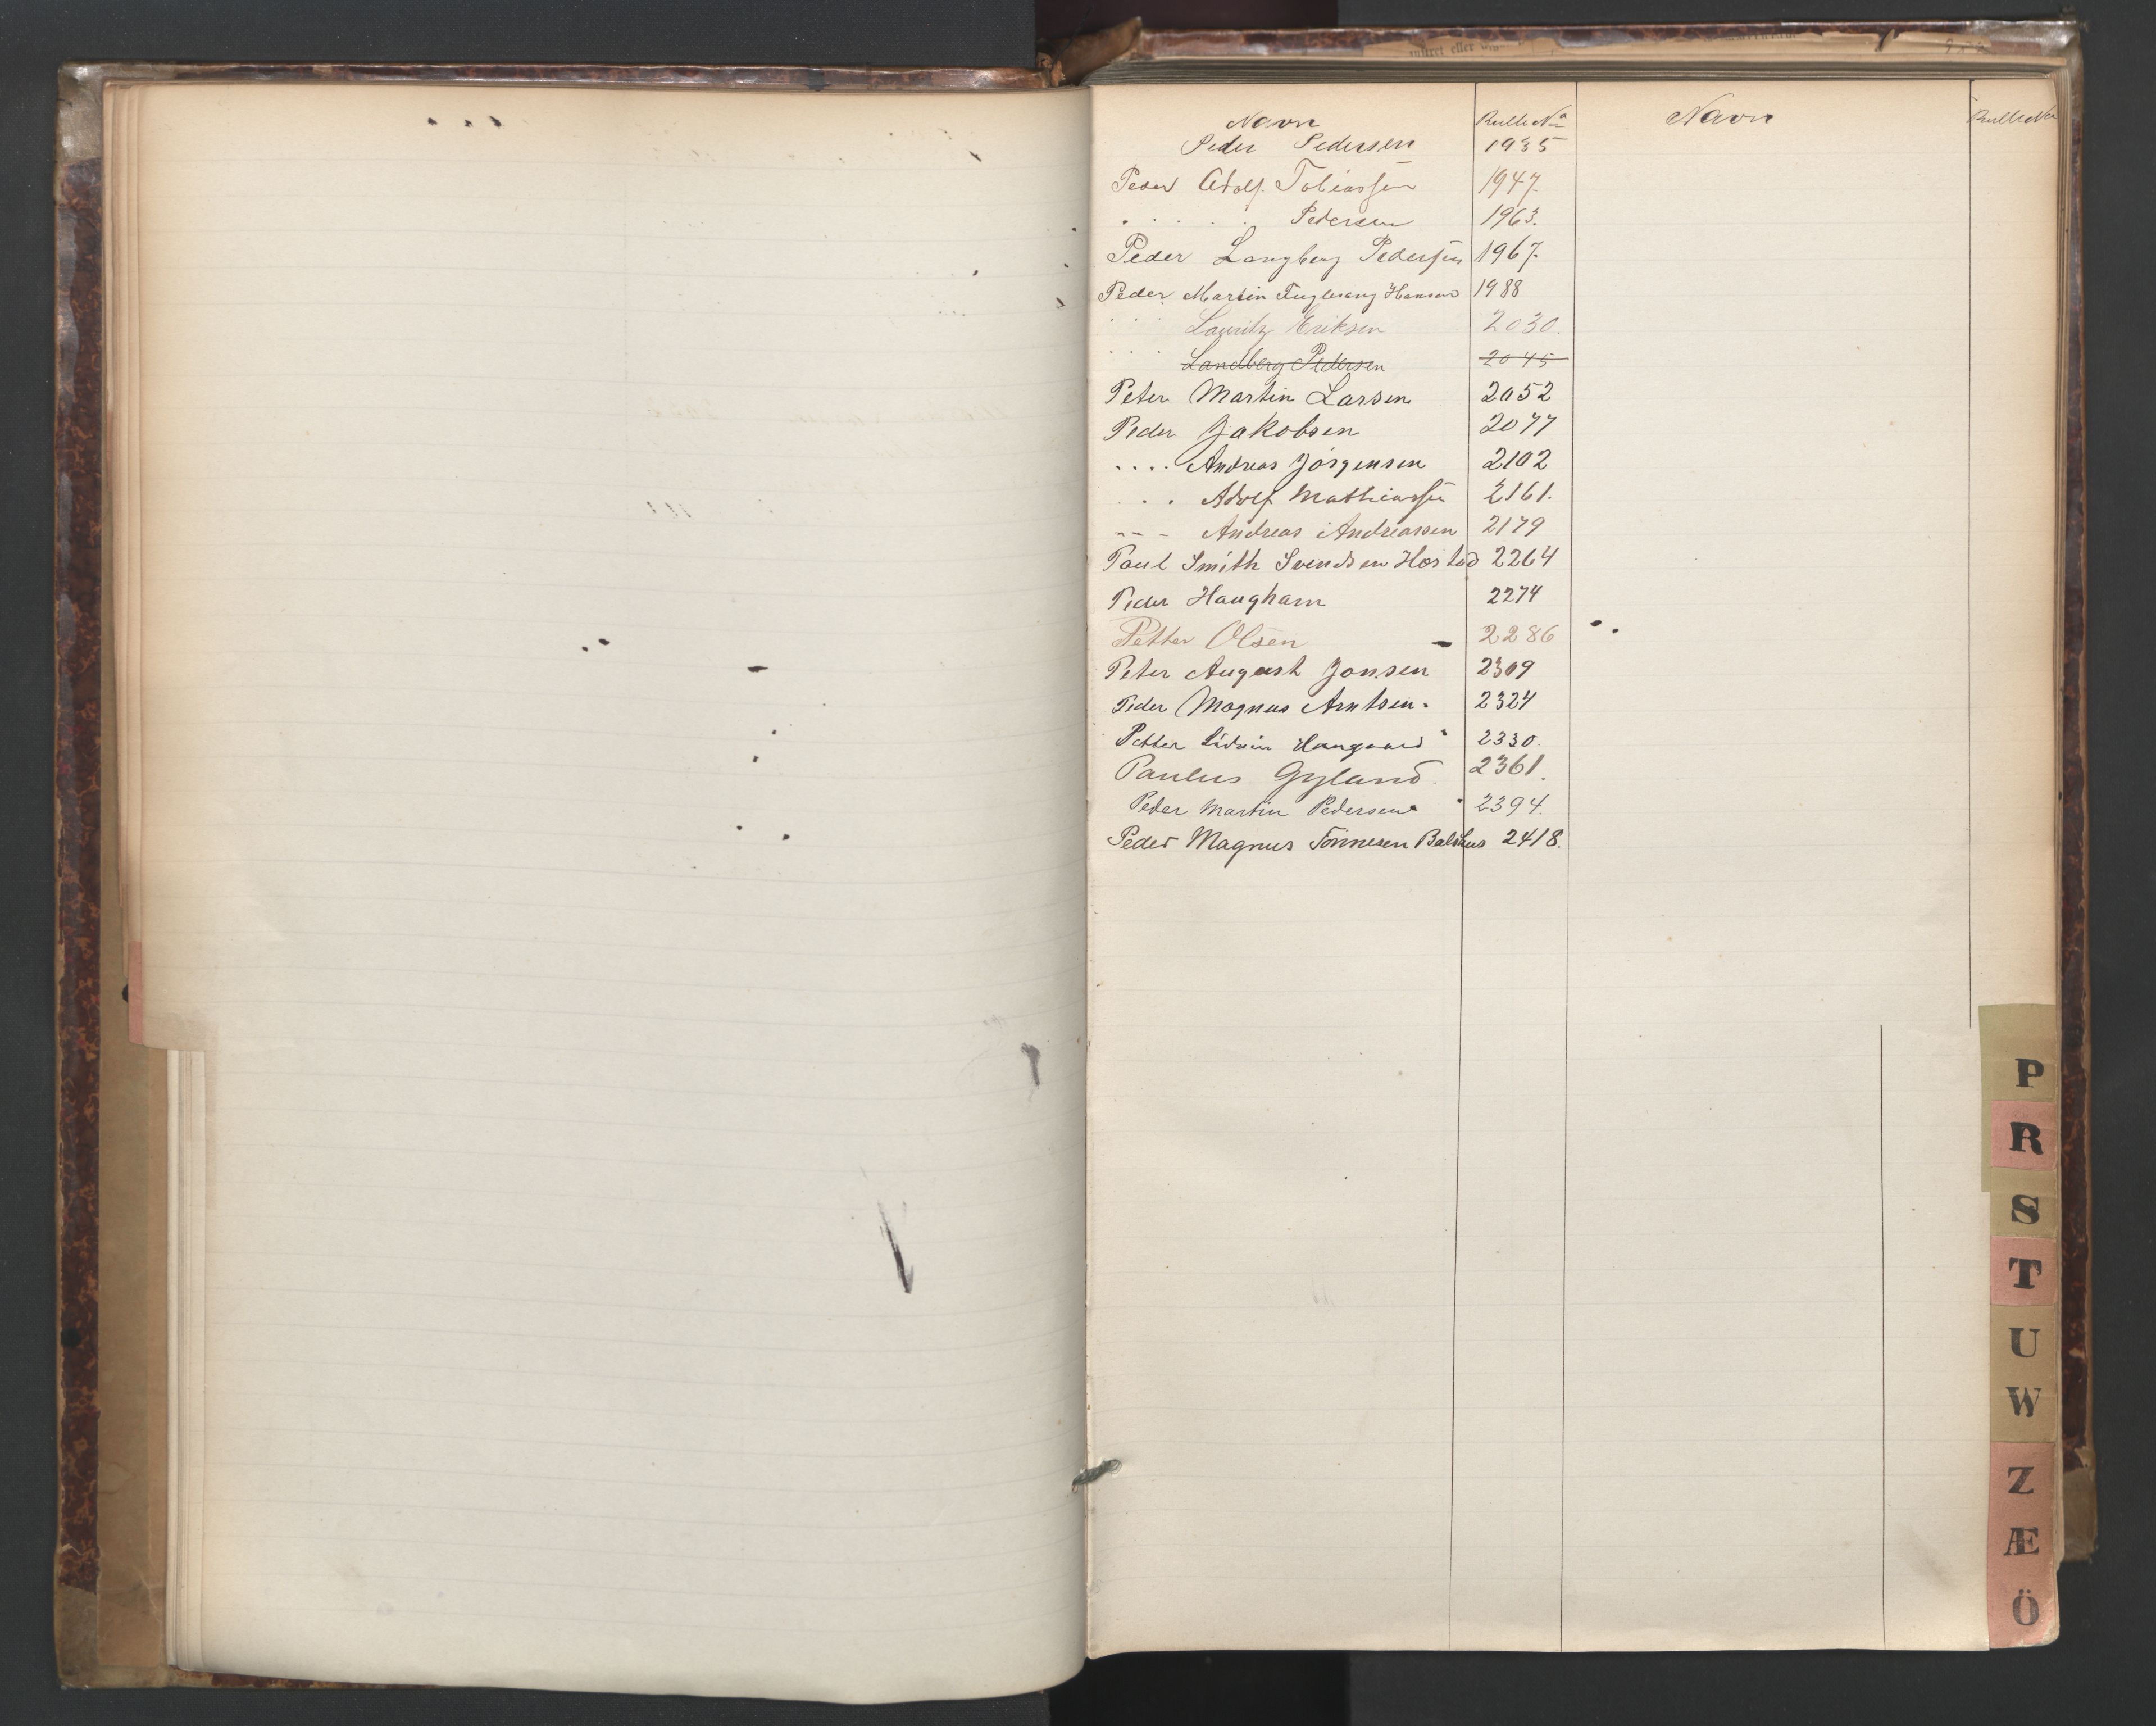 Navn Rulle No Navn Rulle No
Peder Pedersen 1935
Peder Adolf Tobiassen 1947.
. . . . . Pedersen 1963.
Peder Langberg Pedersen 1967.
Peder Martin Fuglevang Hansen 1988
. . . Lauritz Eriksen 2030.
. . . Landberg Pedersen 2045
Peter Martin Larsen 2052
Peder Jakobsen 2077
.... Andreas Jörgensen 2102
. . . Adolf Mathiassen 2161.
- - - Andreas Andreassen 2179
Paul Smith Svendsen Hostad 2264
Peder Haugham 2274
Petter Olsen 2286
Peter August Jonsen 2309
Peder Magnus Arntsen. 2324
Petter Haugaard 2330.
Paulus Gyland. 2361.
Peder Martin Pedersen 2394.
Peder Magnus Tönnesen Balshus 2418.
P
R
S
T
U
W
Z
Æ
Ö